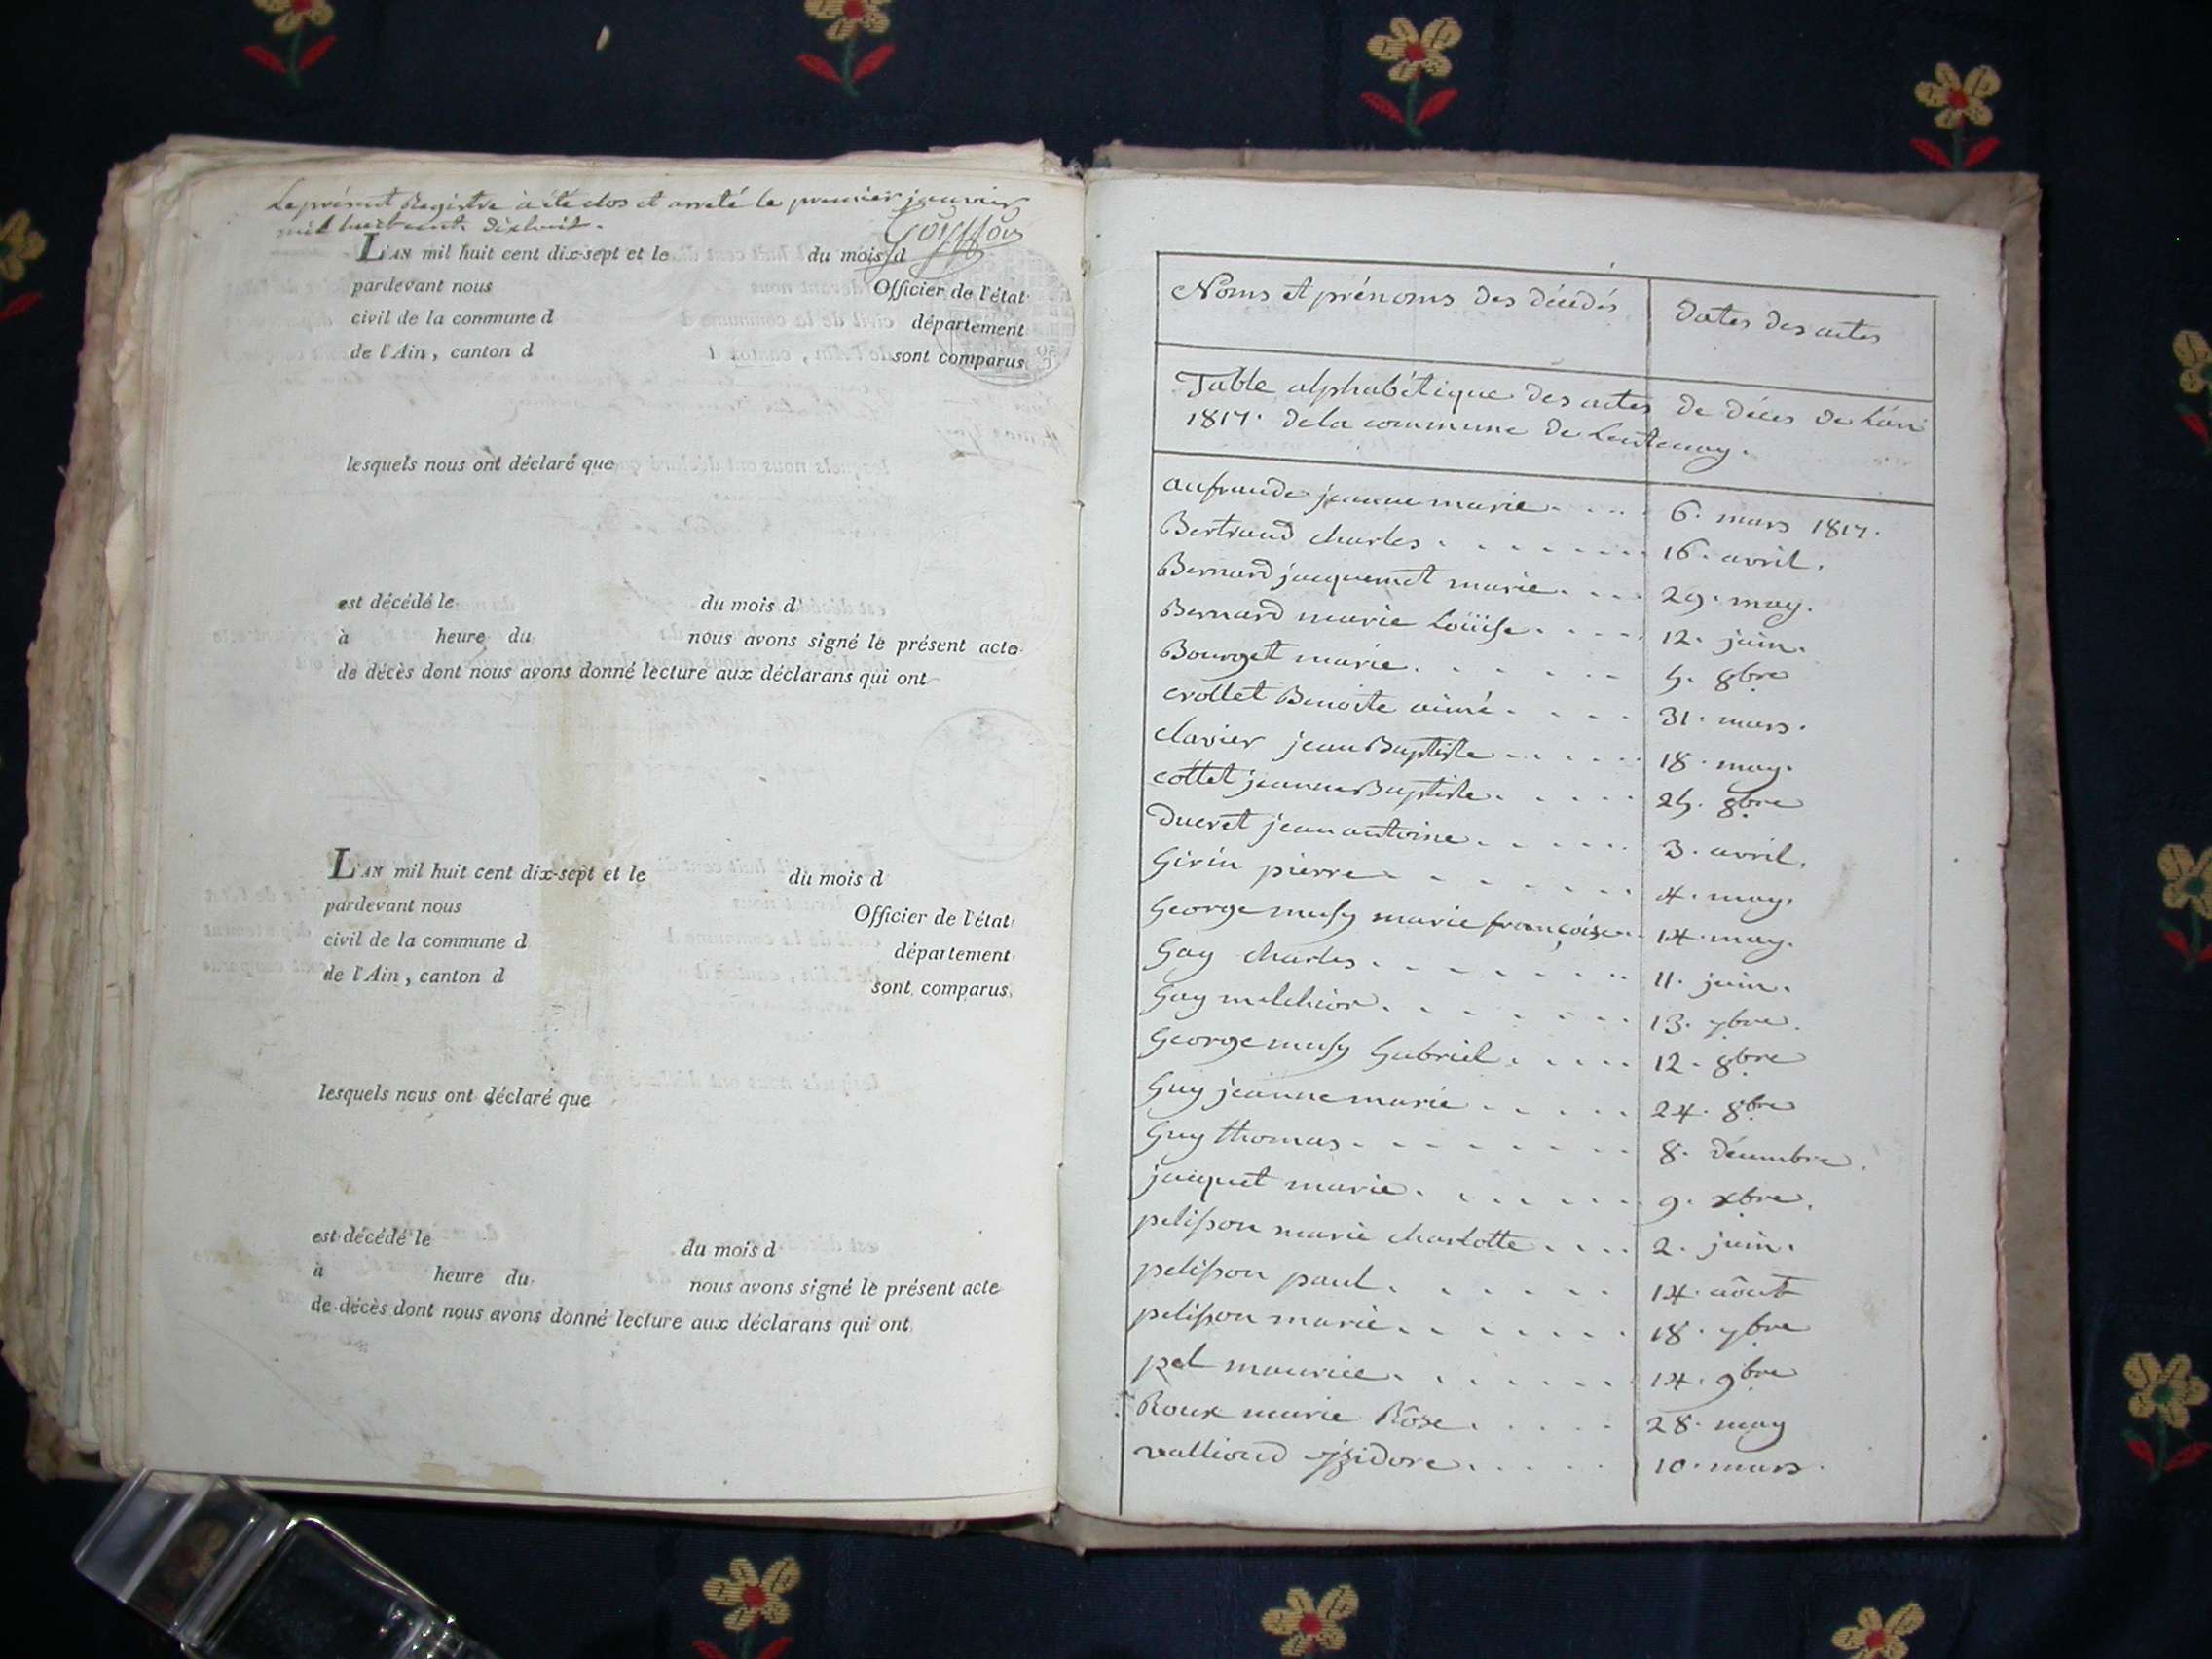 Le présent Registre à été clos et arreté le premier janvier
mil huit cent dixhuit.
Goiffon
L'AN mil huit cent dix-sept et le du mois d
pardevant nous Officier de l'état
civil de la commune d département
de l'Ain, canton d sont comparus
lesquels nous ont déclaré que
est décédé le du mois d
à heure du nous avons signé le présent acte
de décès dont nous avons donné lecture aux déclarans qui ont
L'AN mil huit cent dix-sept et le du mois d
pardevant nous Officier de l'état
civil de la commune d département
de l'Ain, canton d sont comparus
lesquels nous ont déclaré que
est décédé le du mois d
à heure du nous avons signé le présent acte
de décès dont nous avons donné lecture aux déclarans qui ont
Noms et prénoms des décédés Dates des actes
Table alphabétique des actes de décès de l'an
1817. de la commune de Lentenay.
aufrande jeanne marie 6. mars 1817.
Bertrand charles 16. avril.
Bernard jacquemet marie 29. may.
Bernard marie Loüise 12. juin.
Bourget marie 5. 8bre
crollet Benoite aimé 31. mars.
clavier jean Baptiste 18. may.
cottet jeanne Baptiste 25. 8bre
ducret jean antoine 3. avril.
Girin pierre 4. may.
George musy marie françoise 14. may.
Gay charles 11. juin.
Gay melchior 13. 7bre.
George musy Gabriel 12. 8bre
Guy jeanne marie 24. 8bre
Guy thomas 8. décembre.
jacquet marie 9. xbre.
pelisson marie charlotte 2. juin.
pelisson paul 14. aôut
pelisson marie 18. 7bre
pel maurice 14. 9bre
Roux marie Rôse 28. may
vallioud isidore 10. mars.